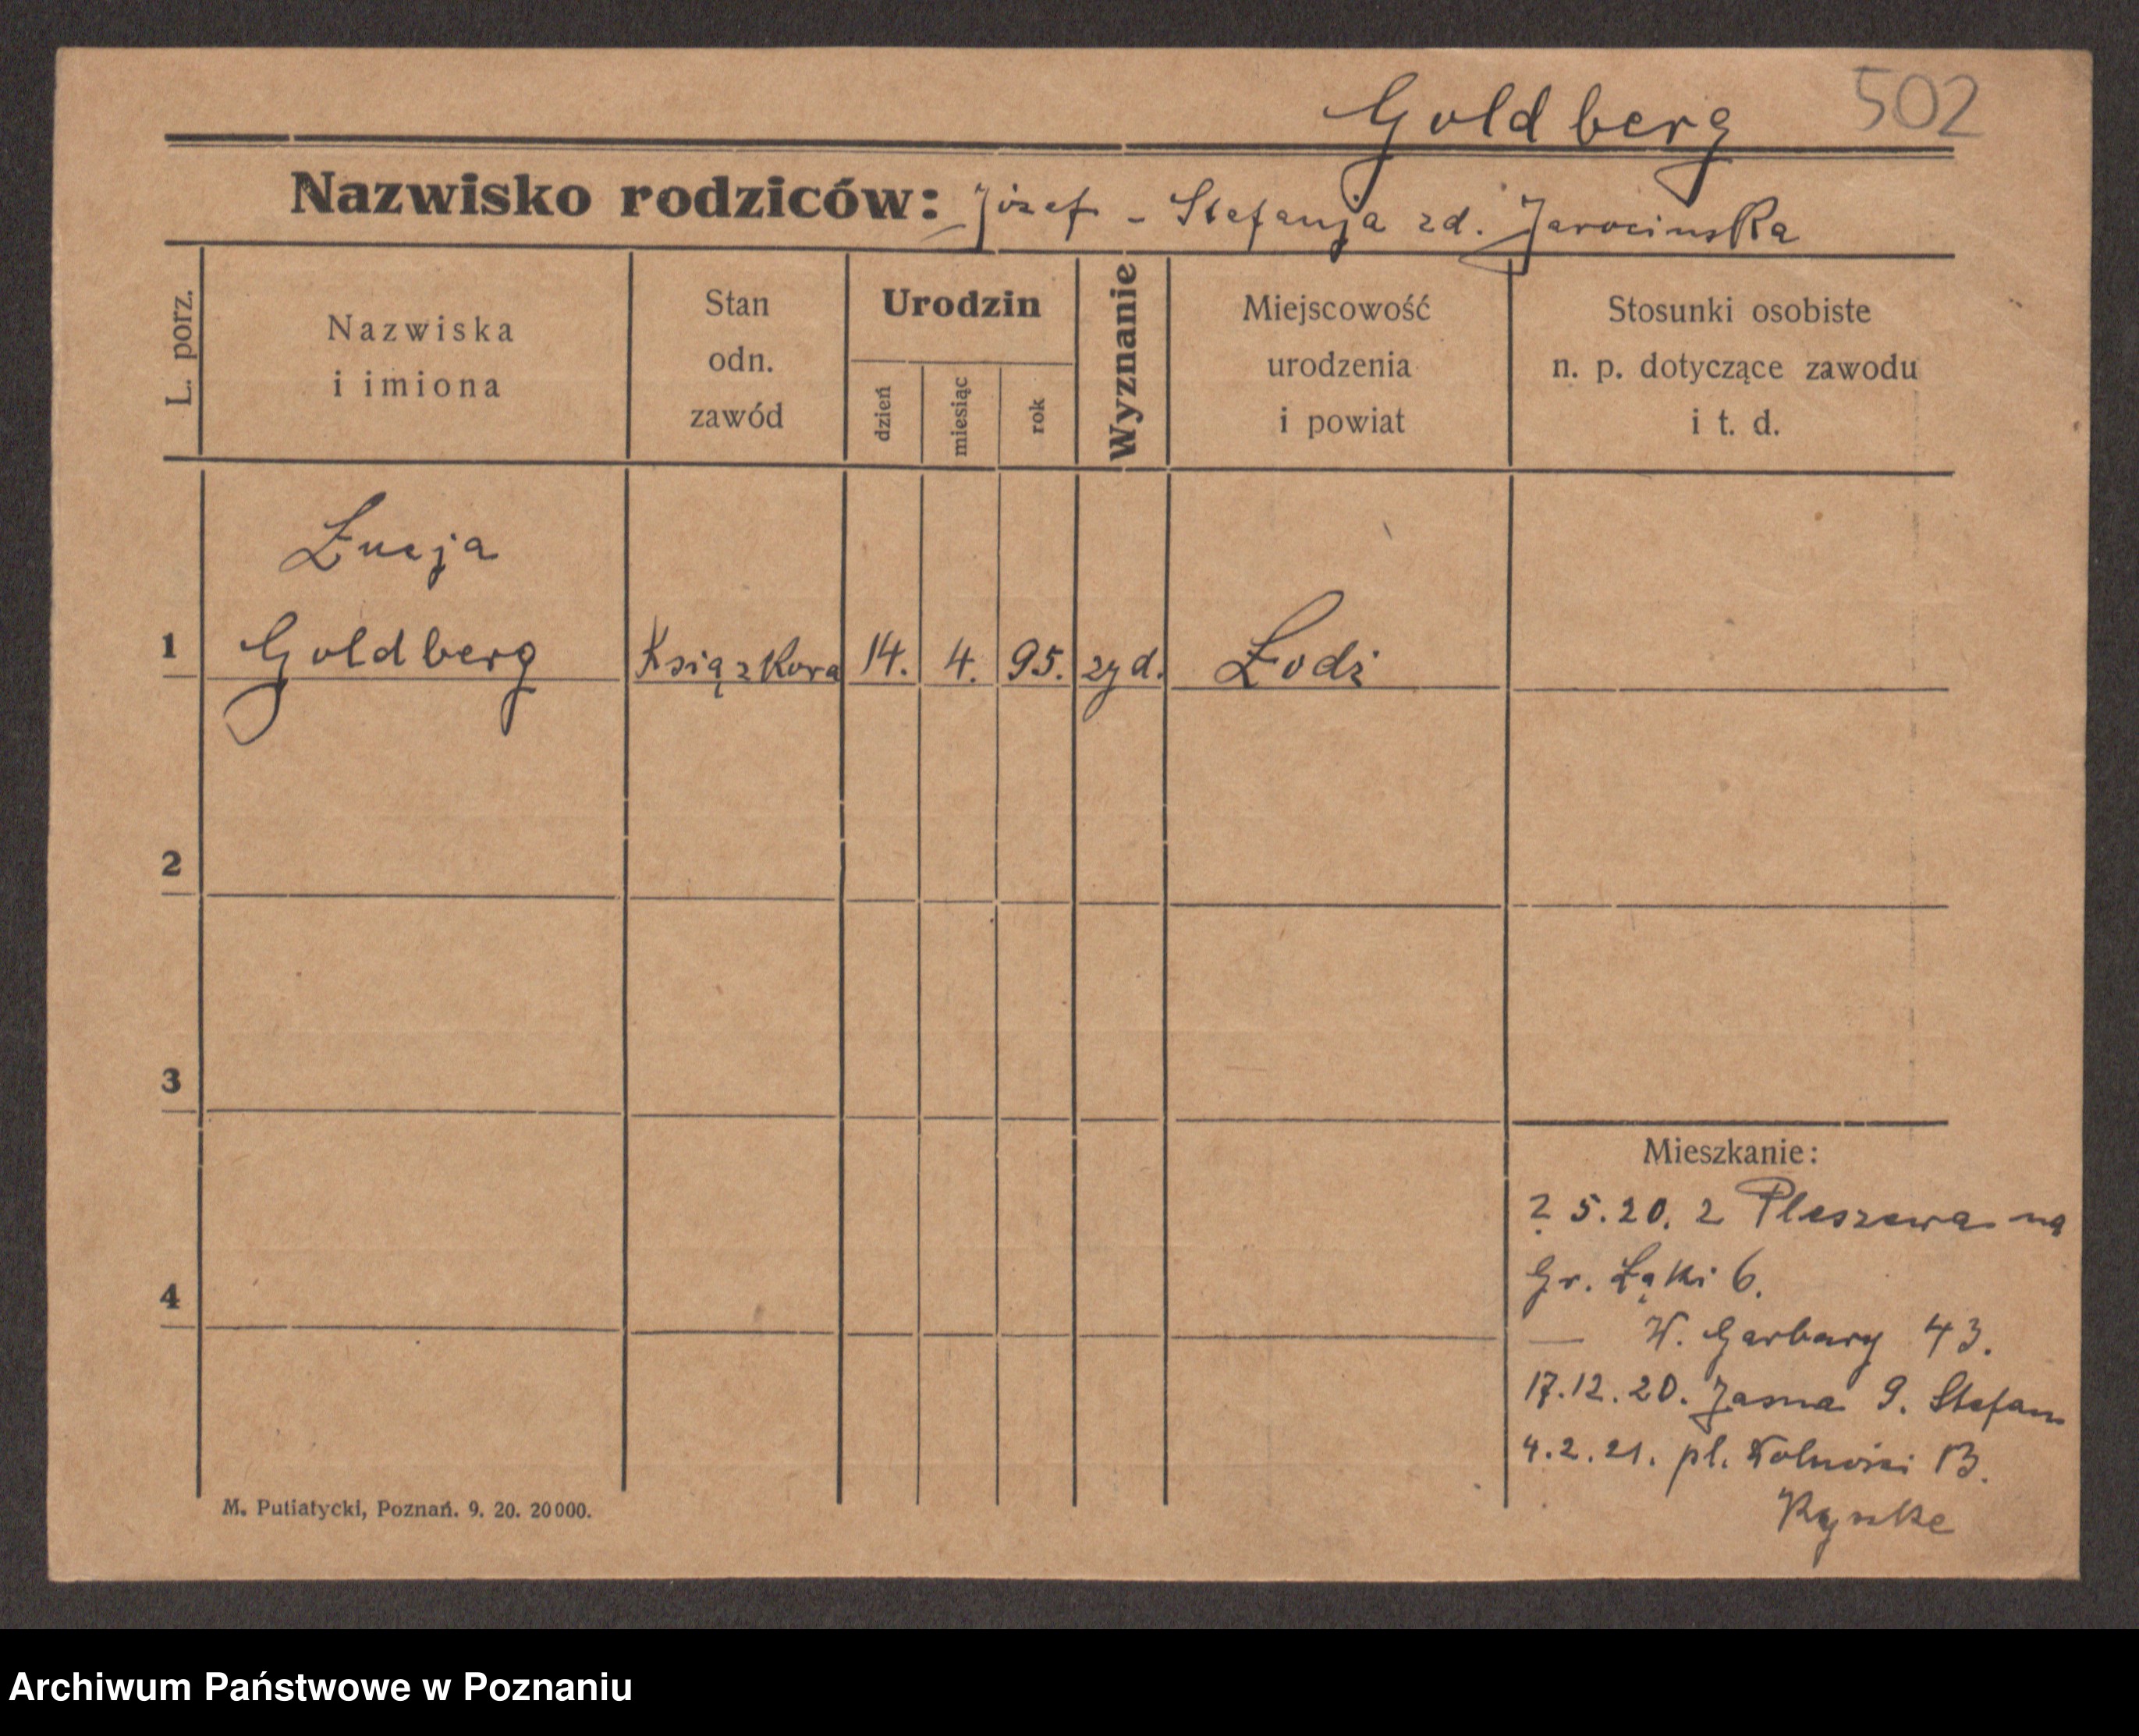 Goldberg 502
Nazwisko rodziców: Józef - Stefanja zd. Jarocinska
L. porz.
Nazwiska
i imiona
Stan
odn.
zawód
Urodzin
dzień
miesiąc
rok
Wyznanie
Miejscowość
urodzenia
i powiat
Stosunki osobiste
n. p. dotyczące zawodu
i t. d.
Łucja
1 Goldberg Książkowa 14. 4. 95. żyd. Łodź
2
3
4
Mieszkanie:
2 5.20. z Pleszewa na
Gr. Łąki 6.
— W. Garbary 43.
17.12.20. Jasna 9. Stefan
4.2.21. pl. Wolności 13.
M. Putiatycki, Poznań. 9. 20. 20000.
Archiwum Państwowe w Poznaniu